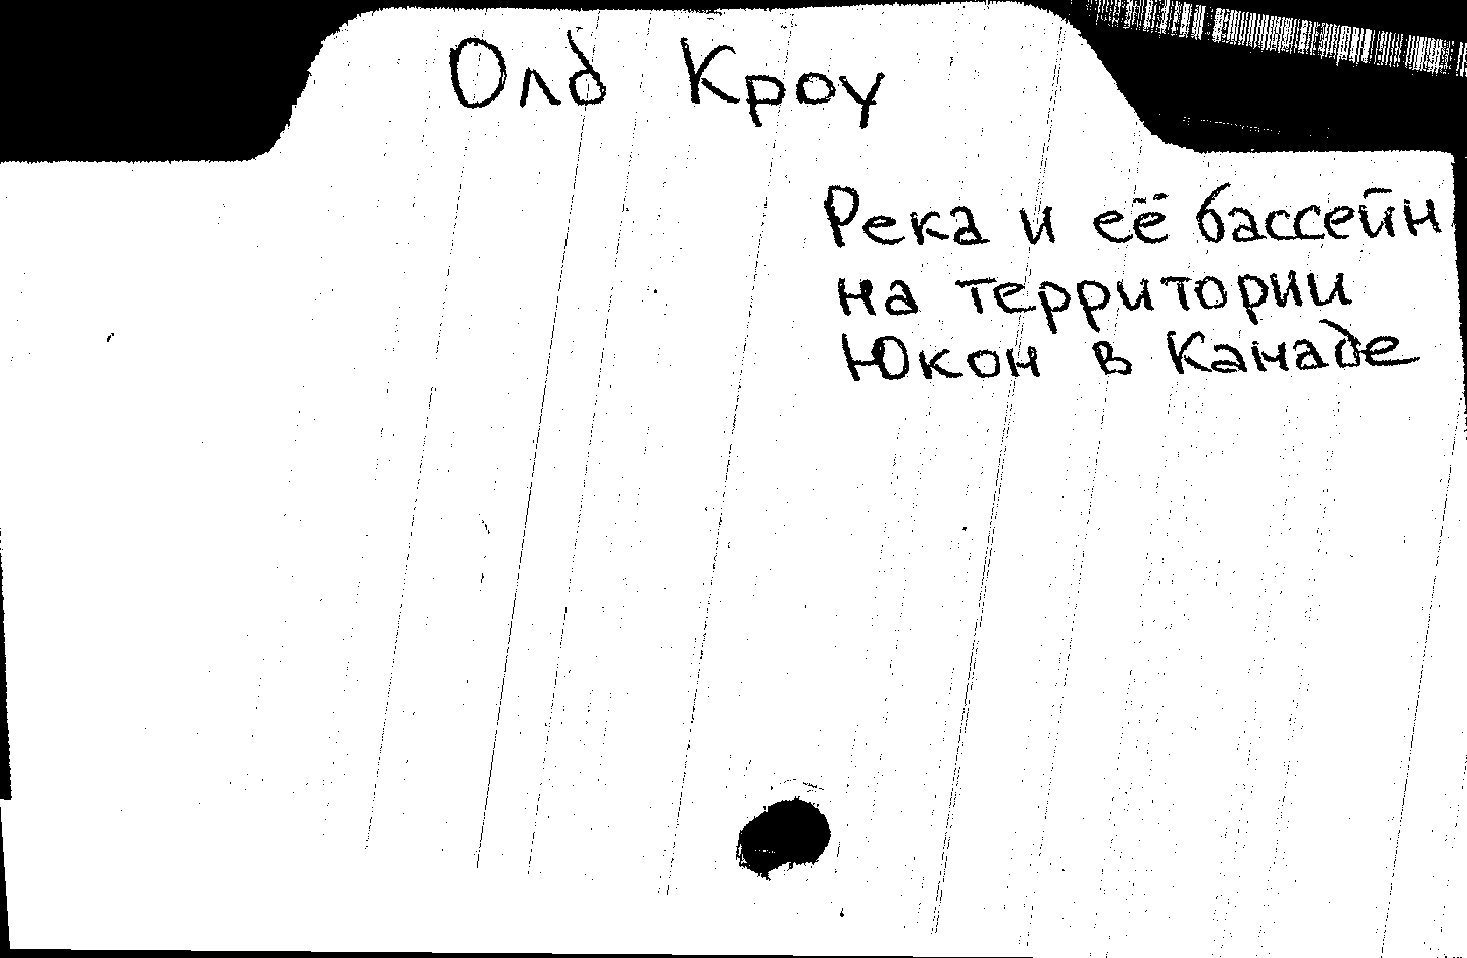 Олд Кроу
Река и её бассейн
на территории
Юкон в Канаде